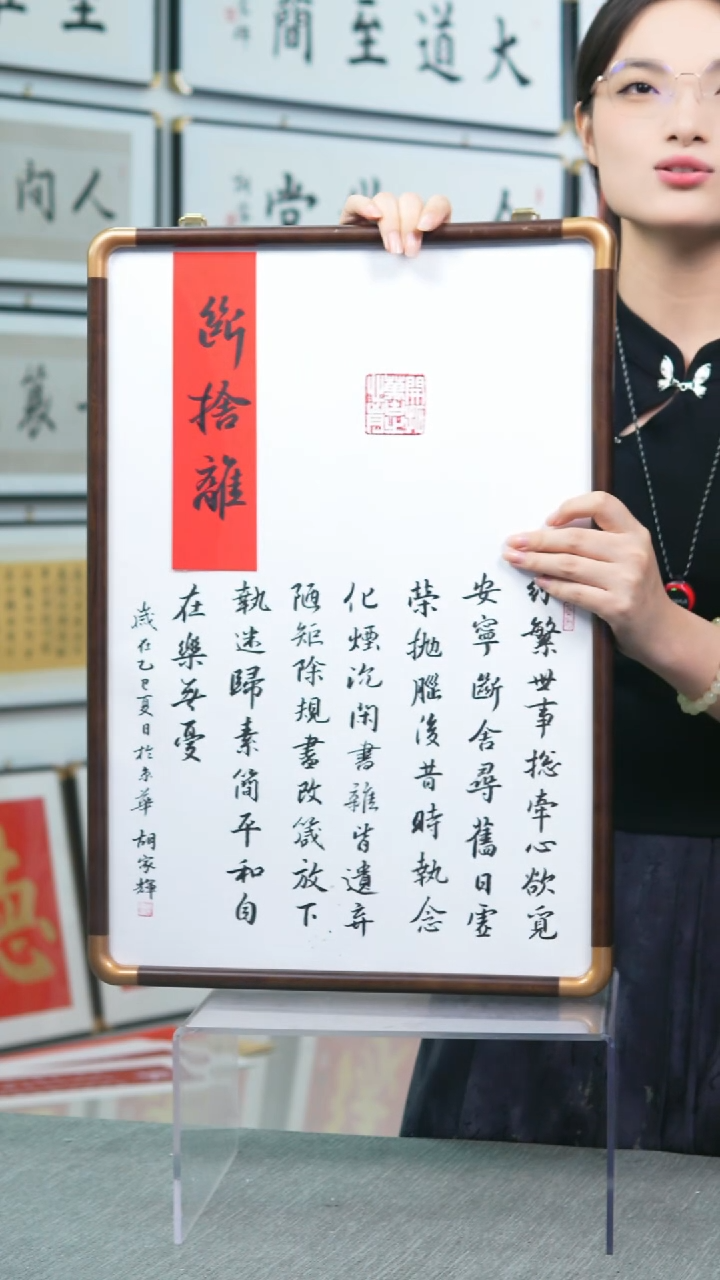 斷捨離
紛繁世事總牽心欲覓
安寧斷舍尋舊日虛
榮拋腦後昔時執念
化煙沉閑書雜皆遺棄
陋矩除規盡改箴放下
執迷歸素簡平和自
在樂無憂
歲在乙巳夏日於京華 胡家輝
大道至簡
人間